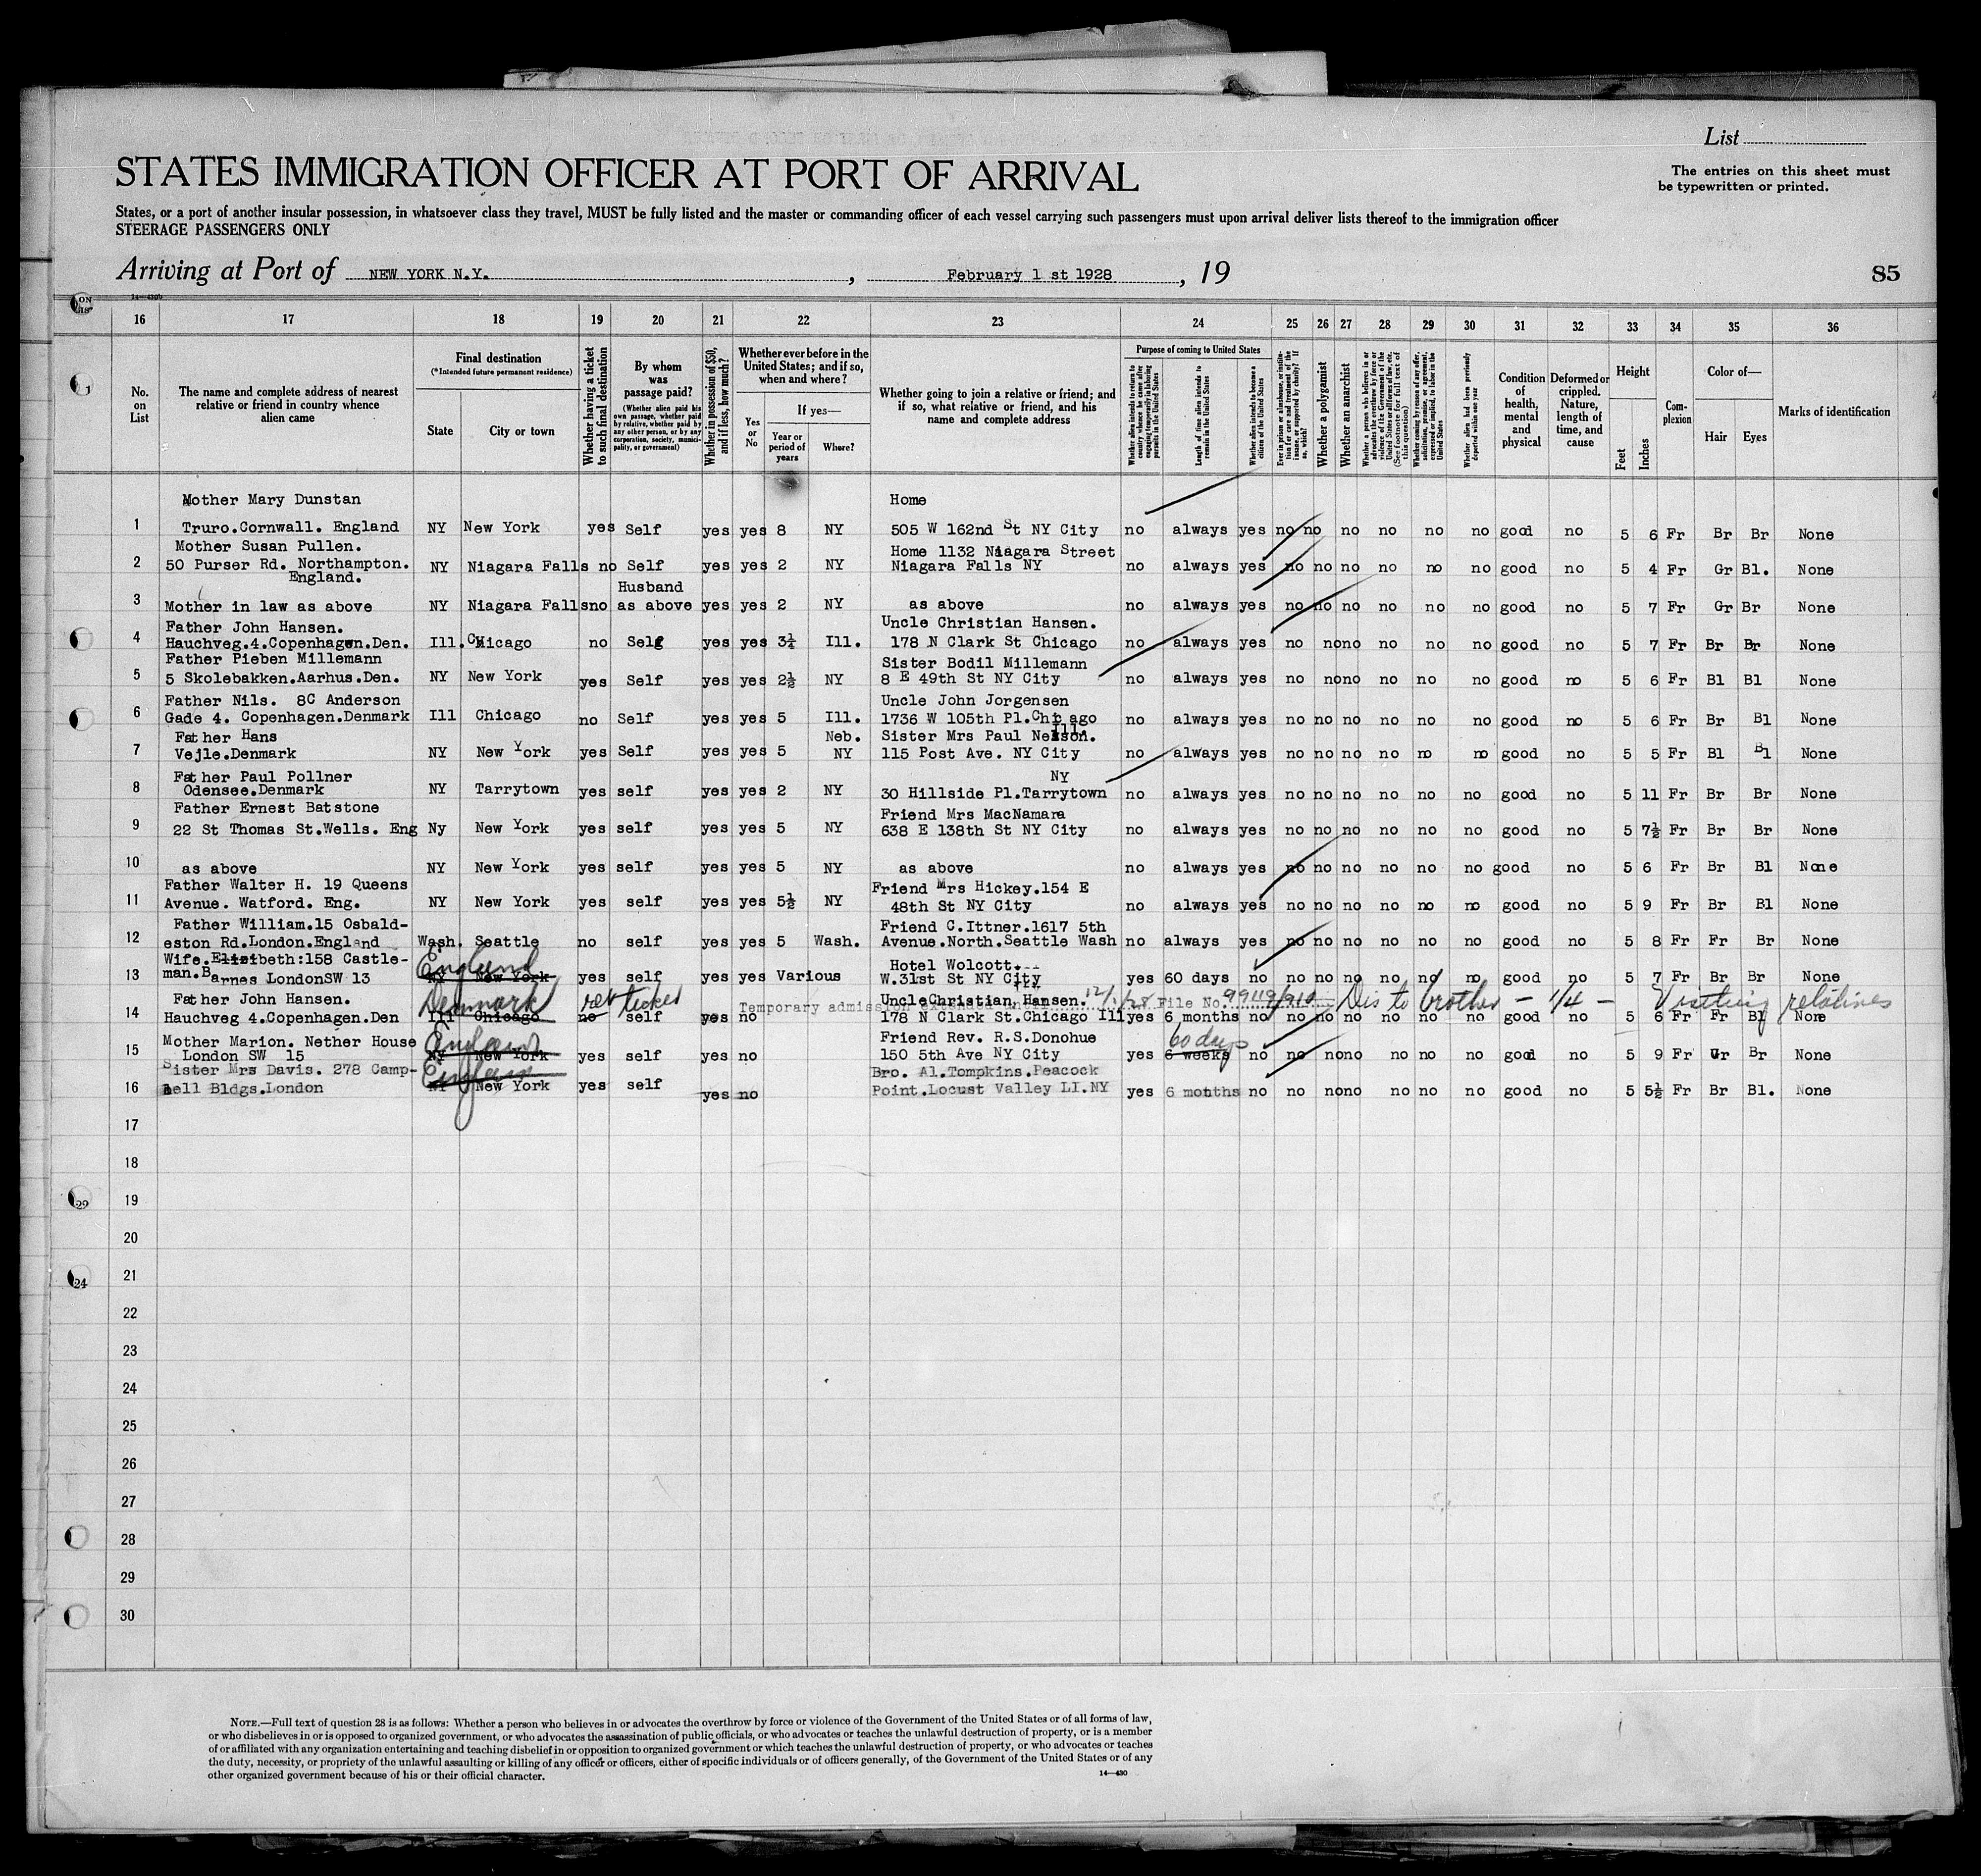 List
STATES IMMIGRATION OFFICER AT PORT OF ARRIVAL
The entries on this sheet must
be typewritten or printed.
States, or a port of another insular possession, in whatsoever class they travel, MUST be fully listed and the master or commanding officer of each vessel carrying such passengers must upon arrival deliver lists thereof to the immigration officer
STEERAGE PASSENGERS ONLY
Arriving at Port of NEW YORK N.Y. , February 1 st 1928 , 19
85
16 17 18 19 20 21 22 23 24 25 26 27 28 29 30 31 32 33 34 35 36
No. on List
The name and complete address of nearest relative or friend in country whence alien came
Final destination
(*Intended future permanent residence)
State City or town
Whether having a ticket to such final destination
By whom was passage paid?
(Whether alien paid his own passage, whether paid by relative, whether paid by any other person, or by any corporation, society, municipality, or government)
Whether in possession of $50, and if less, how much?
Whether ever before in the United States; and if so, when and where?
Yes or No
If yes—
Year or period of years
Where?
Whether going to join a relative or friend; and if so, what relative or friend, and his name and complete address
Purpose of coming to United States
Whether alien intends to return to country whence he came after engaging temporarily in laboring pursuits in the United States
Length of time alien intends to remain in the United States
Whether alien intends to become a citizen of the United States
Ever in prison or almshouse, or institution for care and treatment of the insane, or supported by charity? If so, which?
Whether a polygamist
Whether an anarchist
Whether a person who believes in or advocates the overthrow by force or violence of the Government of the United States or all forms of law, etc. (See footnote for full text of this question)
Whether coming by reason of any offer, solicitation, promise, or agreement, expressed or implied, to labor in the United States
Whether alien had been previously deported within one year
Condition of health, mental and physical
Deformed or crippled. Nature, length of time, and cause
Height
Feet Inches
Complexion
Color of—
Hair Eyes
Marks of identification
Mother Mary Dunstan Home
1 Truro.Cornwall. England NY New York yes Self yes yes 8 NY 505 W 162nd St NY City no always yes no no no no no no good no 5 6 Fr Br Br None
Mother Susan Pullen. Home 1132 Niagara Street
2 50 Purser Rd. Northampton. NY Niagara Falls no Self yes yes 2 NY Niagara Falls NY no always yes no no no no no no good no 5 4 Fr Gr Bl. None
England.
Husband
3 Mother in law as above NY Niagara Falls no as above yes yes 2 NY as above no always yes no no no no no no good no 5 7 Fr Gr Br None
Father John Hansen. Uncle Christian Hansen.
4 Hauchveg.4.Copenhagen.Den. Ill. Chicago no Self yes yes 3½ Ill. 178 N Clark St Chicago no always yes no no no no no no good no 5 7 Fr Br Br None
Father Pieben Millemann Sister Bodil Millemann
5 5 Skolebakken.Aarhus.Den. NY New York yes Self yes yes 2½ NY 8 E 49th St NY City no always yes no no no no no no good no 5 6 Fr Bl Bl None
Father Nils. 8C Anderson Uncle John Jorgensen
6 Gade 4. Copenhagen.Denmark Ill Chicago no Self yes yes 5 Ill. 1736 W 105th Pl.Chicago no always yes no no no no no no good no 5 6 Fr Br Bl None
Ill.
Father Hans Neb. Sister Mrs Paul Nelson.
7 Vejle.Denmark NY New York yes Self yes yes 5 NY 115 Post Ave. NY City no always yes no no no no no no good no 5 5 Fr Bl Bl None
Father Paul Pollner NY
8 Odensee.Denmark NY Tarrytown yes self yes yes 2 NY 30 Hillside Pl.Tarrytown no always yes no no no no no no good no 5 11 Fr Br Br None
Father Ernest Batstone Friend Mrs MacNamara
9 22 St Thomas St.Wells. Eng Ny New York yes self yes yes 5 NY 638 E 138th St NY City no always yes no no no no no no good no 5 7½ Fr Br Br None
10 as above NY New York yes self yes yes 5 NY as above no always yes no no no no no no good no 5 6 Fr Br Bl None
Father Walter H. 19 Queens Friend Mrs Hickey.154 E
11 Avenue. Watford. Eng. NY New York yes self yes yes 5½ NY 48th St NY City no always yes no no no no no no good no 5 9 Fr Br Bl None
Father William.15 Osbald- Friend C.Ittner.1617 5th
12 eston Rd.London.England Wash. Seattle no self yes yes 5 Wash. Avenue.North.Seattle Wash no always yes no no no no no no good no 5 8 Fr Fr Br None
Wife.Elisibeth:158 Castle- England Hotel Wolcott.
13 man.Barnes LondonSW 13 NY New York yes self yes yes Various W.31st St NY City yes 60 days no no no no no no no good no 5 7 Fr Br Br None
Father John Hansen. Denmark ret ticket Temporary admission extended until 12/1/28 File No. 99119/910 Dis to brother — 1/4 — Visiting relatives
UncleChristian Hansen.
14 Hauchveg 4.Copenhagen.Den Ill Chicago no self yes no 178 N Clark St.Chicago Ill yes 6 months no no no no no no no good no 5 6 Fr Fr Bl None
Mother Marion. Nether House England Friend Rev. R.S.Donohue 60 days
15 London SW 15 NY New York yes self yes no 150 5th Ave NY City yes 6 weeks no no no no no no no good no 5 9 Fr Gr Br None
Sister Mrs Davis. 278 Camp- England Bro. Al.Tompkins.Peacock
16 bell Bldgs.London NY New York yes self yes no Point.Locust Valley LI.NY yes 6 months no no no no no no no good no 5 5½ Fr Br Bl. None
17
18
19
20
21
22
23
24
25
26
27
28
29
30
NOTE.—Full text of question 28 is as follows: Whether a person who believes in or advocates the overthrow by force or violence of the Government of the United States or of all forms of law,
or who disbelieves in or is opposed to organized government, or who advocates the assassination of public officials, or who advocates or teaches the unlawful destruction of property, or is a member
of or affiliated with any organization entertaining and teaching disbelief in or opposition to organized government or which teaches the unlawful destruction of property, or who advocates or teaches
the duty, necessity, or propriety of the unlawful assaulting or killing of any officer or officers, either of specific individuals or of officers generally, of the Government of the United States or of any
other organized government because of his or their official character.
14—430